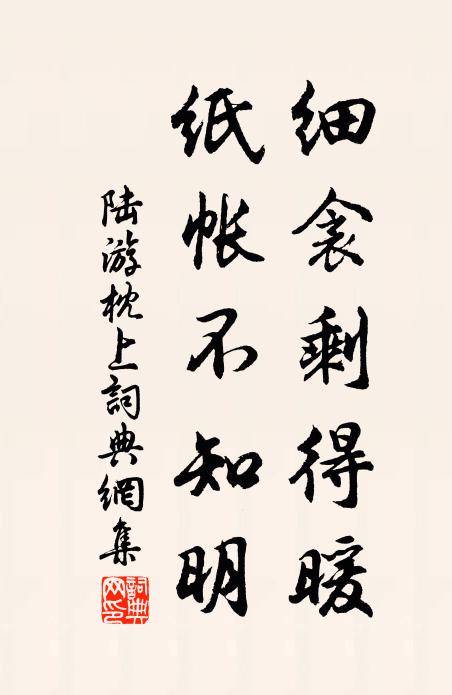 细衾剩得暖
纸帐不知明
陆游枕上詞典網集
詞典网印